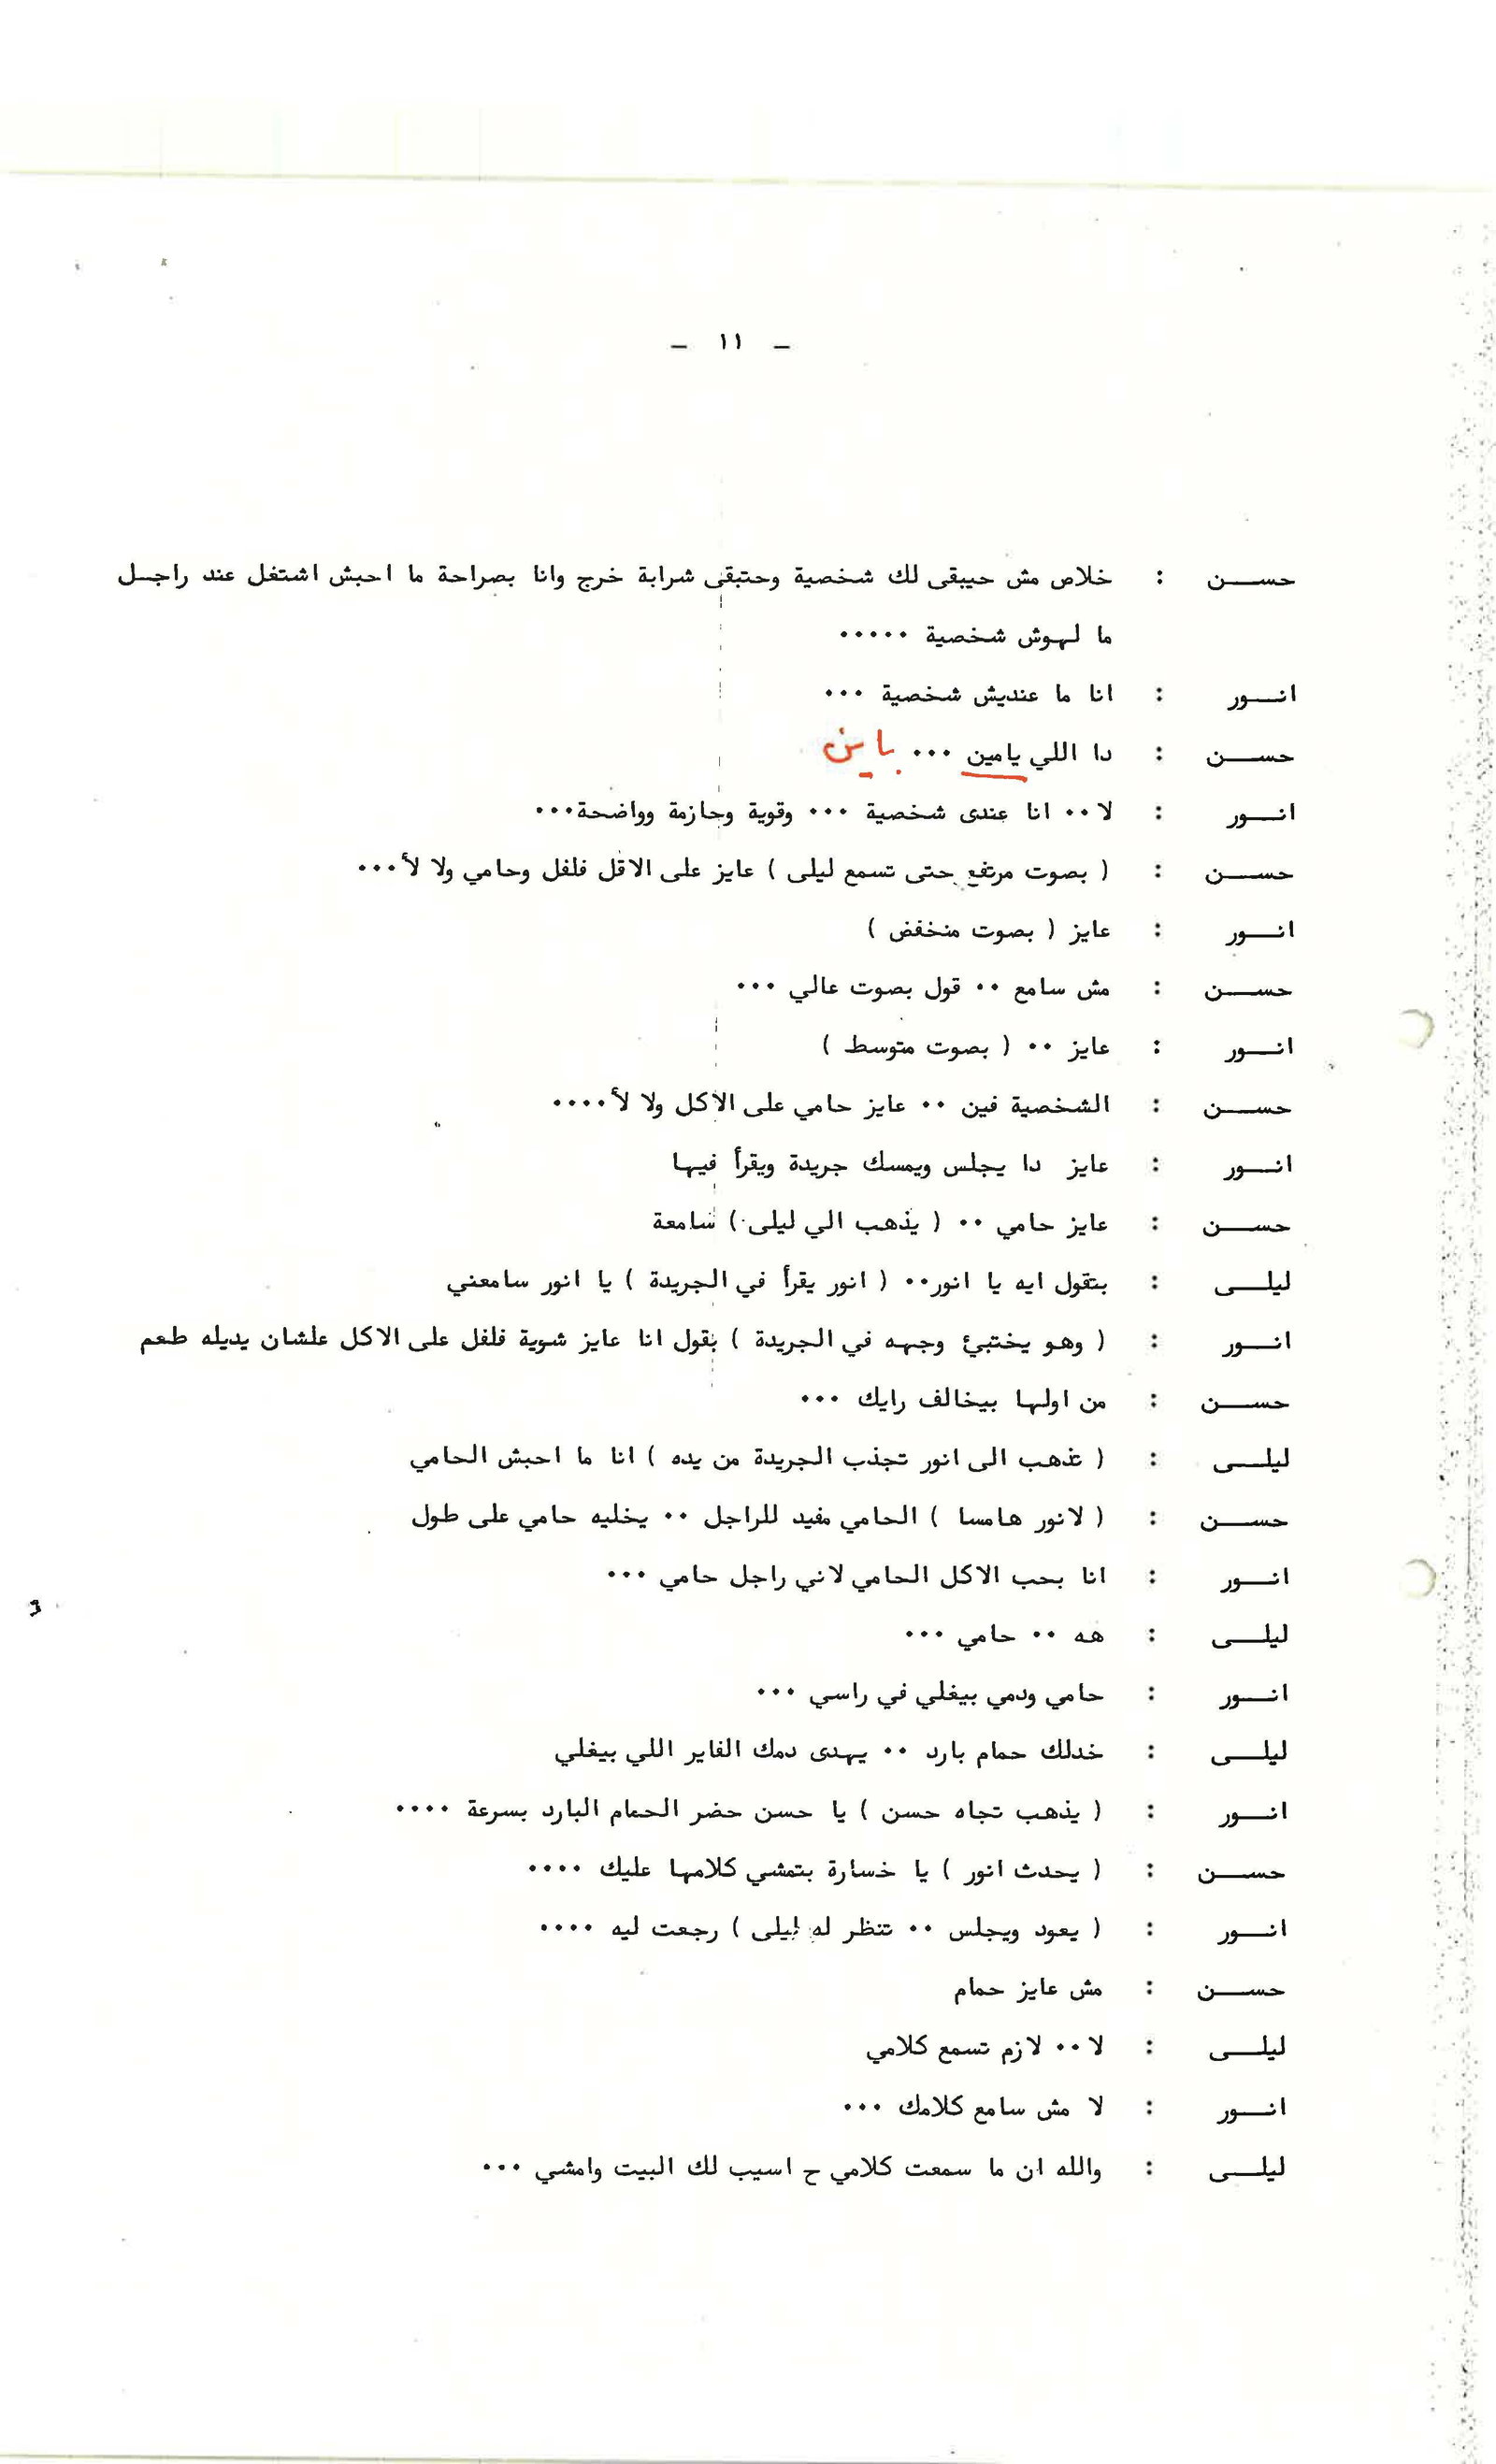 - ١١ -
حسن : خلاص مش حيبقى لك شخصية وحتبقى شرابة خرج وانا بصراحة ما احبش اشتغل عند راجل
ما لهوش شخصية .....
انور : انا ما عنديش شخصية ...
حسن : دا اللي يامين ... باين
انور : لا .. انا عندى شخصية ... وقوية وحازمة وواضحة...
حسن : ( بصوت مرتفع حتى تسمع ليلى ) عايز على الاقل فلفل وحامي ولا لأ...
انور : عايز ( بصوت منخفض )
حسن : مش سامع .. قول بصوت عالي ...
انور : عايز .. ( بصوت متوسط )
حسن : الشخصية فين .. عايز حامي على الاكل ولا لأ....
انور : عايز دا يجلس ويمسك جريدة ويقرأ فيها
حسن : عايز حامي .. ( يذهب الي ليلى ) سامعة
ليلى : بتقول ايه يا انور.. ( انور يقرأ في الجريدة ) يا انور سامعني
انور : ( وهو يختبئ وجهه في الجريدة ) بقول انا عايز شوية فلفل على الاكل علشان يديله طعم
حسن : من اولها بيخالف رايك ...
ليلى : ( تذهب الى انور تجذب الجريدة من يده ) انا ما احبش الحامي
حسن : ( لانور هامسا ) الحامي مفيد للراجل .. يخليه حامي على طول
انور : انا بحب الاكل الحامي لاني راجل حامي ...
ليلى : هه .. حامي ...
انور : حامي ودمي بيغلي في راسي ...
ليلى : خدلك حمام بارد .. يهدى دمك الفاير اللي بيغلي
انور : ( يذهب تجاه حسن ) يا حسن حضر الحمام البارد بسرعة ....
حسن : ( يحدث انور ) يا خسارة بتمشي كلامها عليك ....
انور : ( يعود ويجلس .. تنظر له ليلى ) رجعت ليه ....
حسن : مش عايز حمام
ليلى : لا .. لازم تسمع كلامي
انور : لا مش سامع كلامك ...
ليلى : والله ان ما سمعت كلامي ح اسيب لك البيت وامشي ...